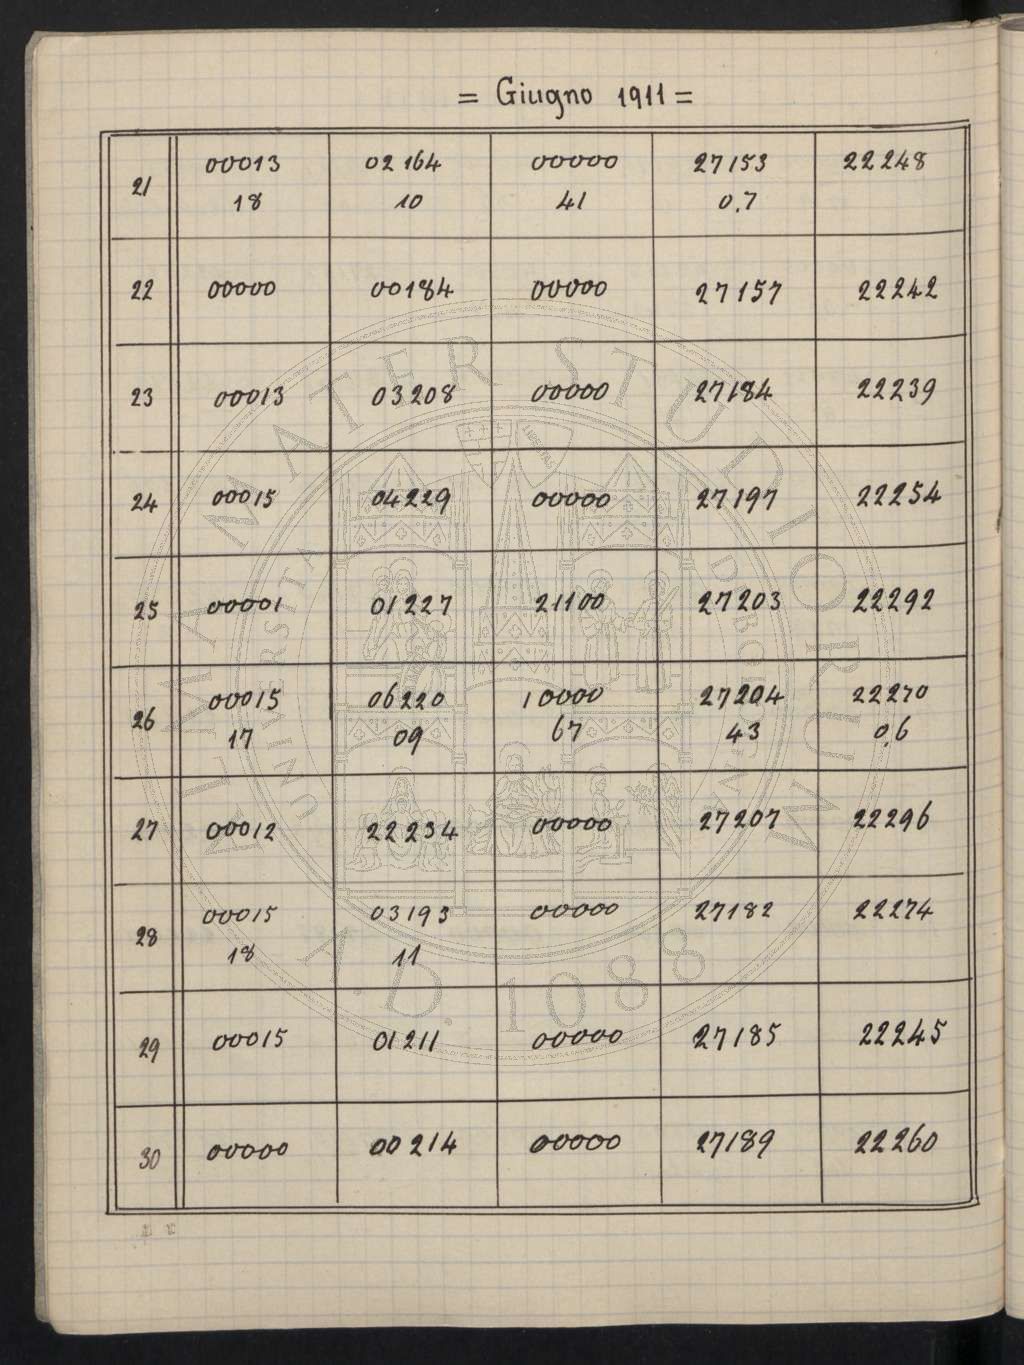 = Giugno 1911 =
21 00013 02164 00000 27153 22248
18 10 41 0.7
22 00000 00184 00000 27157 22242
23 00013 03208 00000 27184 22239
24 00015 04229 00000 27197 22254
25 00001 01227 21100 27203 22292
26 00015 06220 10000 27204 22270
17 09 67 43 0.6
27 00012 22234 00000 27207 22296
28 00015 03193 00000 27182 22274
18 11
29 00015 01211 00000 27185 22245
30 00000 00214 00000 27189 22260
ALMA MATER STUDIORUM
A.D. 1088